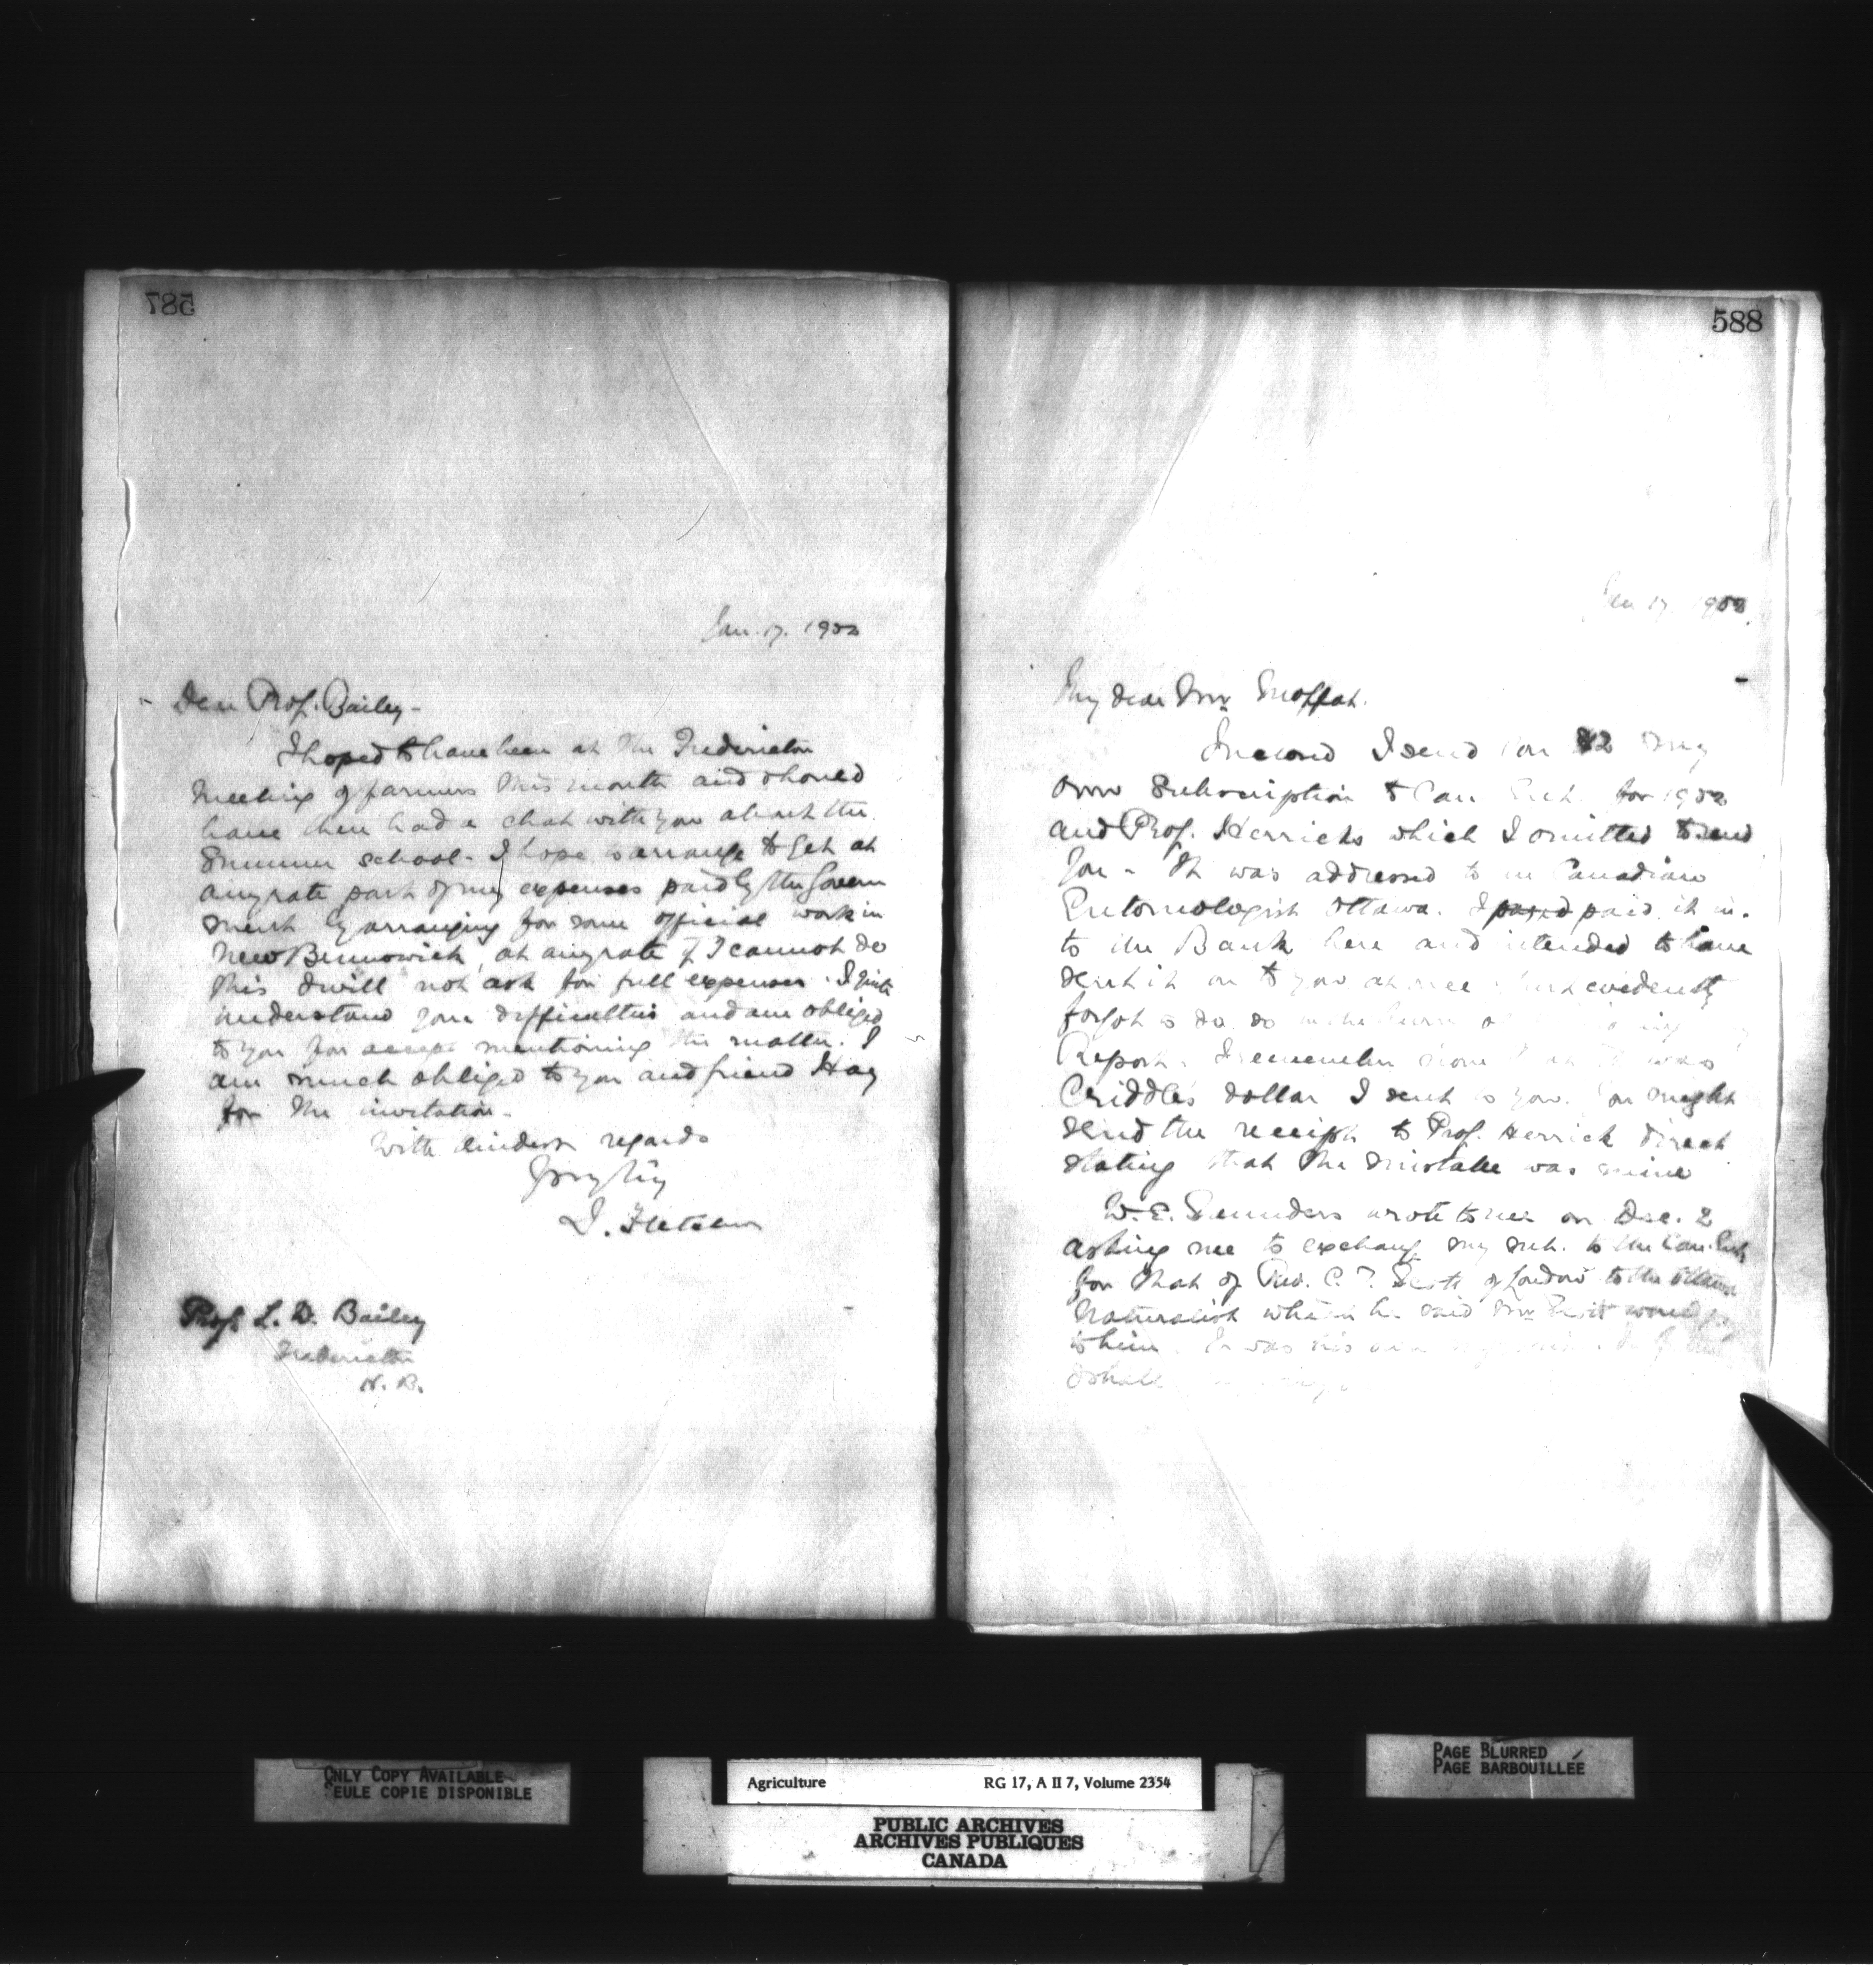 587
Jan. 17. 1902
Dear Prof. Bailey -
I hoped to have been at the Fredericton
meeting of farmers this month and should
have then had a chat with you about the
Summer school - I hope to arrange to get at
anyrate part of my expenses paid by the Govern
ment by arranging for some official work in
New Brunswick, at anyrate if I cannot do
this I will not ask for full expenses. I quite
understand your difficulties and am obliged
to you for mentioning the matter. I
am much obliged to you and friend Hay
for the invitation -
With kindest regards
J. Fletcher
Prof. L. W. Bailey
Fredericton
N. B.
588
Jan 17. 1902
My dear Mr Moffat.
Inclosed I send you $2 my
own Subscription to Can Ent. for 1902
and Prof. Herricks which I omitted to send
you - It was addressed to Canadian
Entomologist Ottawa. I paid it in.
to the Bank here and intended to have
sent it on to you at once but evidently
forgot to do so in the
Report. I remember now that it was
Criddle's dollar I sent to you. You might
send the receipt to Prof. Herrick direct
stating that the mistake was mine
W. E. Saunders wrote to me on Dec. 2
asking me to exchange my sub. to the Can. Ent.
for that of Rev. C. T. Scott of London to the Ottawa
Naturalist which he said Mr Scott would
to him. It was his own
I shall
ONLY COPY AVAILABLE
SEULE COPIE DISPONIBLE
Agriculture RG 17, A II 7, Volume 2354
PUBLIC ARCHIVES
ARCHIVES PUBLIQUES
CANADA
PAGE BLURRED
PAGE BARBOUILLÉE